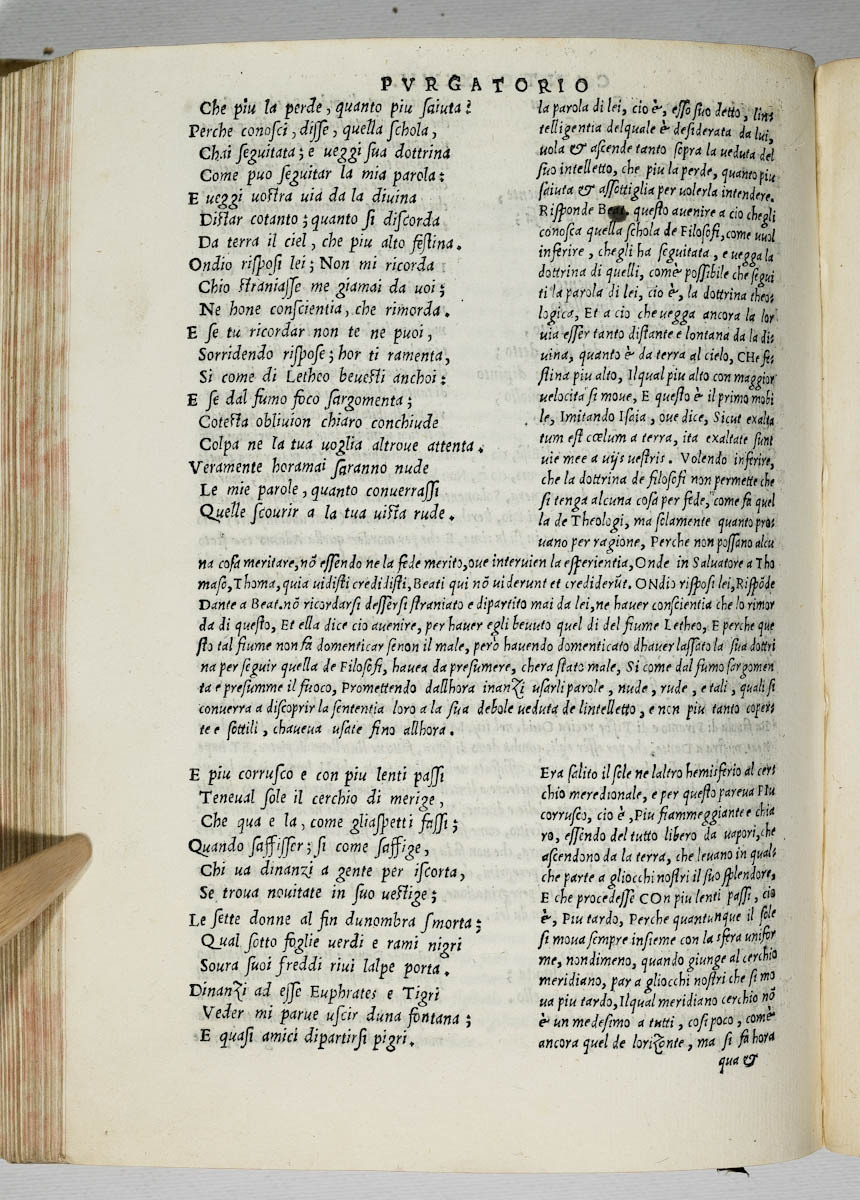 PVRGATORIO
Che piu la perde, quanto piu saiuta?
Perche conosci, disse, quella schola,
Chai seguitata; e ueggi sua dottrina
Come puo seguitar la mia parola:
E ueggi uostra uia da la diuina
Distar cotanto; quanto si discorda
Da terra il ciel, che piu alto festina.
Ondio risposi lei; Non mi ricorda
Chio straniasse me giamai da uoi;
Ne hone conscientia, che rimorda.
E se tu ricordar non te ne puoi,
Sorridendo rispose; hor ti ramenta,
Si come di Letheo beuesti anchoi:
E se dal fumo foco sargomenta;
Cotesta obliuion chiaro conchiude
Colpa ne la tua uoglia altroue attenta.
Veramente horamai saranno nude
Le mie parole, quanto conuerrassi
Quelle scourir a la tua uista rude.
la parola di lei, cio è, esso suo detto, lin-
telligentia delquale è desiderata da lui,
uola & ascende tanto sopra la ueduta del
suo intelletto, che piu la perde, quanto piu
saiuta & assottiglia per uolerla intendere.
Risponde Beat. questo auenire a cio chegli
conosca quella schola de Filosofi, come uuol
inferire, chegli ha seguitata, e uegga la
dottrina di quelli, comè possibile che segui
ti la parola di lei, cio è, la dottrina theo-
logica, Et a cio che uegga ancora la lor
uia esser tanto distante e lontana da la di-
uina, quanto è da terra al cielo, CHe fe-
stina piu alto, Ilqual piu alto con maggior
uelocita si moue, E questo è il primo mobi
le, Imitando Isaia, oue dice, Sicut exalta
tum est cœlum a terra, ita exaltate sunt
uie mee a uijs uestris. Volendo inferire,
che la dottrina de filosofi non permette che
si tenga alcuna cosa per fede, come fa quel
la de Theologi, ma solamente quanto pro-
uano per ragione, Perche non possano alcu
na cosa meritare, nõ essendo ne la fede merito, oue interuien la esperientia, Onde in Saluatore a Tho
maso, Thoma, quia uidisti credidisti, Beati qui nõ uiderunt et crediderũt. ONdio risposi lei, Rispõde
Dante a Beat. nõ ricordarsi dessersi straniato e dipartito mai da lei, ne hauer conscientia che lo rimor
da di questo, Et ella dice cio auenire, per hauer egli beuuto quel di del fiume Letheo, E perche que
sto tal fiume non fa domenticar senon il male, però hauendo domenticato dhauer lassato la sua dottri
na per seguir quella de Filosofi, hauea da presumere, chera stato male, Si come dal fumo sargomen
ta e presumme il fuoco, Promettendo dallhora inanzi usarli parole, nude, rude, e tali, quali si
conuerra a discoprir la sententia loro a la sua debole ueduta de lintelletto, e non piu tanto coper-
te e sottili, chaueua usate fino allhora.
E piu corrusco e con piu lenti passi
Teneual sole il cerchio di merige,
Che qua e la, come gliaspetti fassi;
Quando saffisser; si come saffige,
Chi ua dinanzi a gente per iscorta,
Se troua nouitate in suo uestige;
Le sette donne al fin dunombra smorta;
Qual sotto foglie uerdi e rami nigri
Soura suoi freddi riui lalpe porta.
Dinanzi ad esse Euphrates e Tigri
Veder mi parue uscir duna fontana;
E quasi amici dipartirsi pigri.
Era salito il sole ne laltro hemisferio al cer-
chio meredionale, e per questo pareua PIu
corrusco, cio è, Piu fiammeggiante e chia
ro, essendo del tutto libero da uapori, che
ascendono da la terra, che leuano in qual-
che parte a gliocchi nostri il suo splendore,
E che procedesse COn piu lenti passi, cio
è, Piu tardo, Perche quantunque il sole
si moua sempre insieme con la sfera unifor
me, nondimeno, quando giunge al cerchio
meridiano, par a gliocchi nostri che si mo
ua piu tardo, Ilqual meridiano cerchio nõ
è un medesimo a tutti, cosi poco, comè
ancora quel de lorizonte, ma si fa hora
qua &